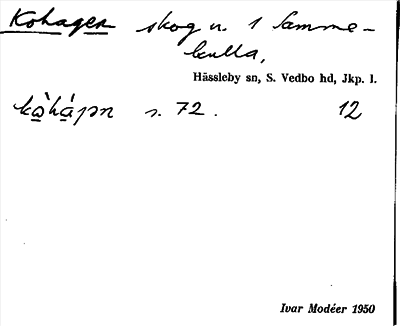 Kohagen skog u. 1 Samme-
kulla,
Hässleby sn, S. Vedbo hd, Jkp. l.
s. 72. 12
Ivar Modéer 1950